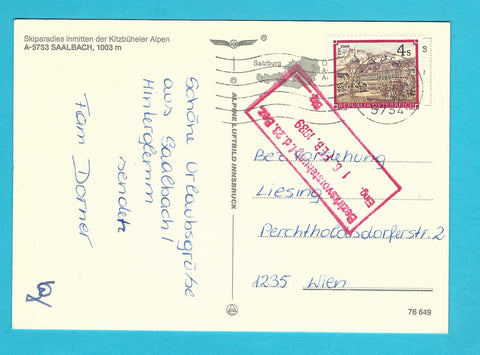 Skiparadies inmitten der Kitzbüheler Alpen
A-5753 SAALBACH, 1003 m
Schöne Urlaubsgrüße
aus Saalbach/
Hinterglemm
sendet
Fam Dorner
© ALPINE LUFTBILD INNSBRUCK
®
Salzburg
4 S
REPUBLIK ÖSTERREICH
5754
Bezirksvorstehung f. d. 23. Bez.
Eing.
FEB. 1989
Bez. Vorstehung
Liesing
Perchtholdsdorferstr. 2
1235 Wien
76 649